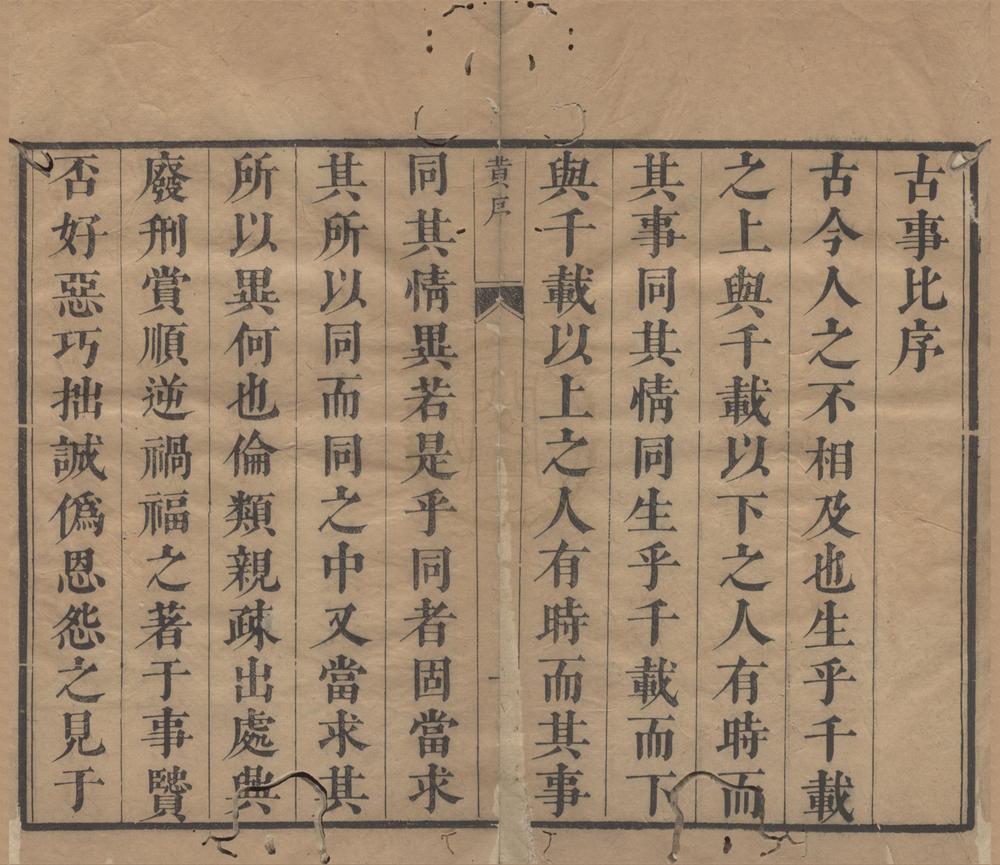 古事比序
古今人之不相及也生乎千載
之上與千載以下之人有時而
其事同其情同生乎千載而下
與千載以上之人有時而其事
黄序
一
同其情異若是乎同者固當求
其所以同而同之中又當求其
所以異何也倫類親疎出處興
廢刑賞順逆禍福之著于事賢
否好惡巧拙誠僞恩怨之見于